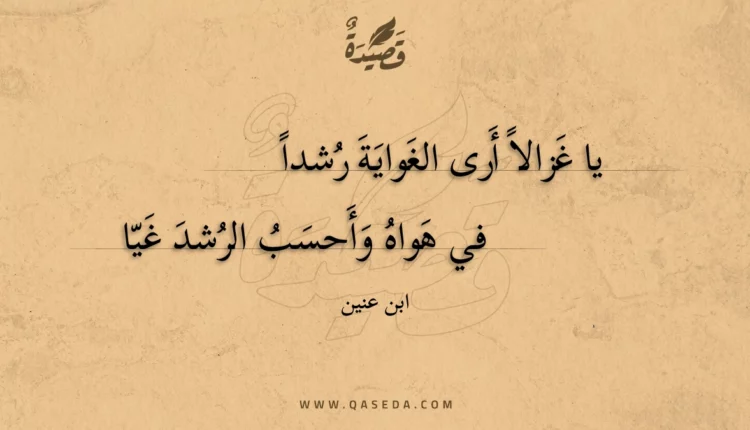 قَصِيدَةٌ
يا غَزالاً أَرى الغَوايَةَ رُشداً
في هَواهُ وَأَحسَبُ الرُشدَ غَيّا
ابن عنين
WWW.QASEDA.COM